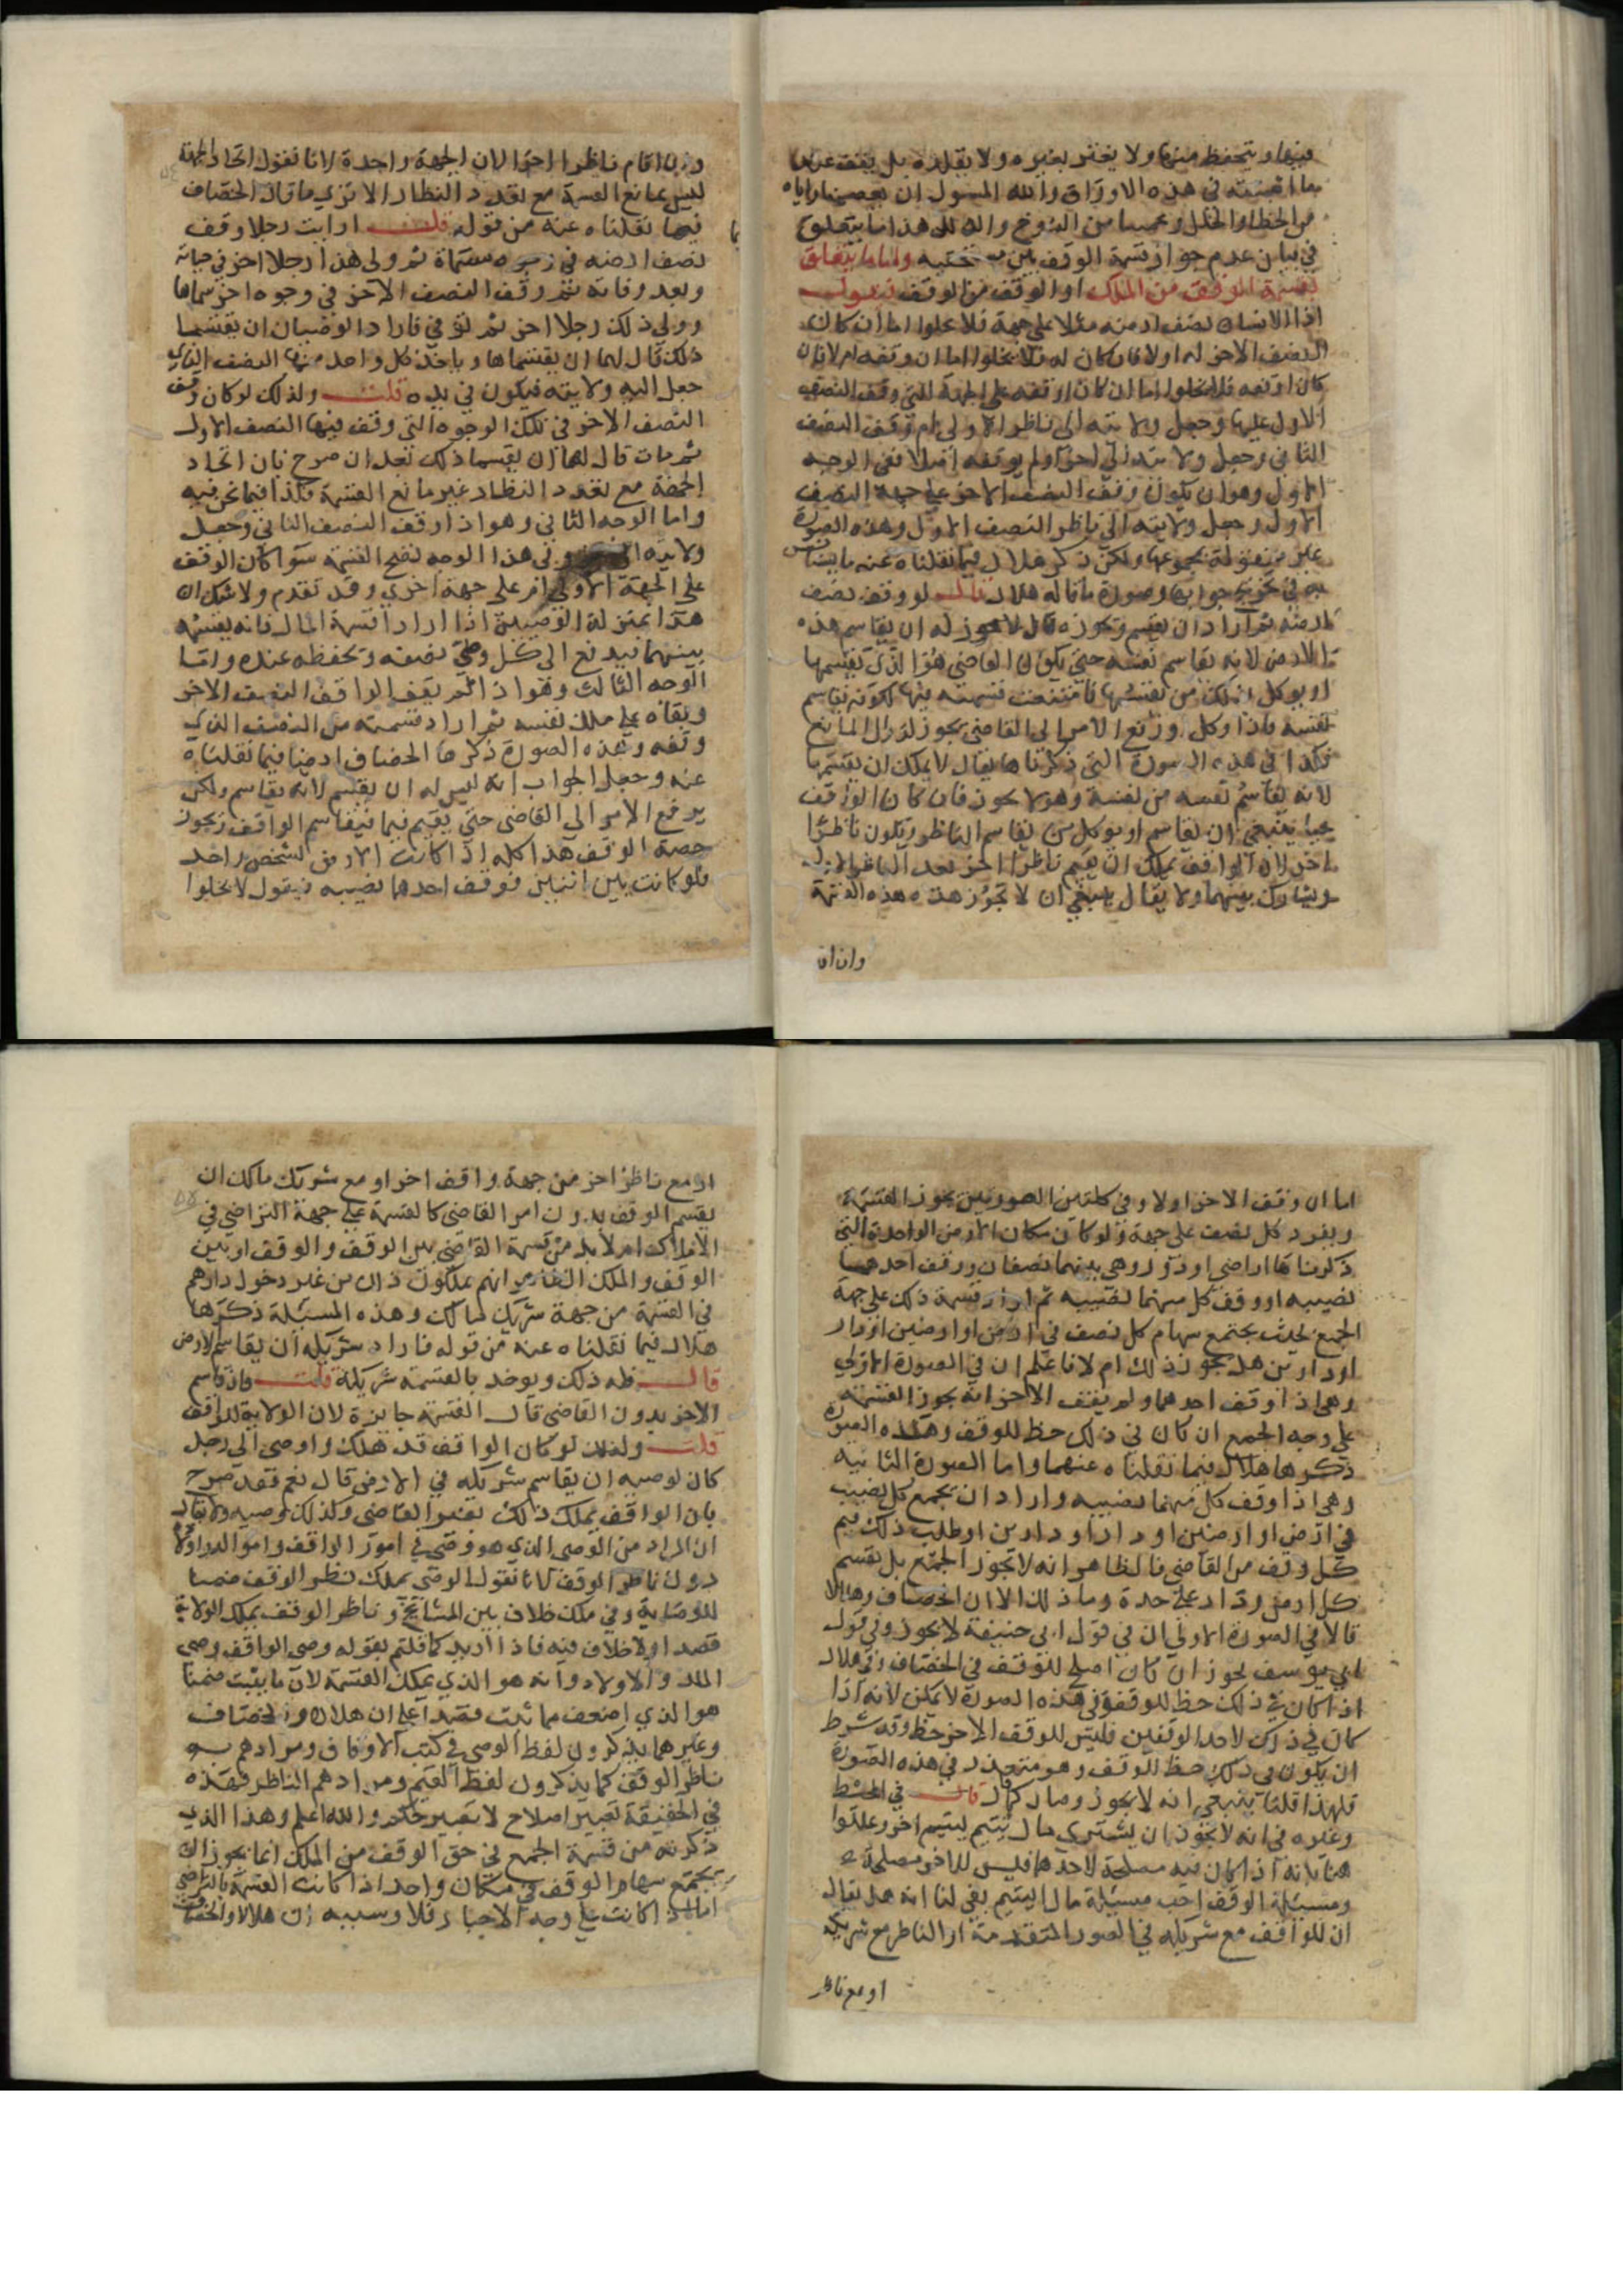 فيها ويتحفظ منها ولا يغتر بغيره ولا يقلده بل يقف عند
ما اثبته في هذه الاوراق والله المسول ان يعصمنا واياه
من الخطا والخلل هذا ما يتعلق
في بيان عدم جواز قسمة الوقف بين مستحقيه واما ما يتعلق
بقسمة الوقف من الملك او الوقف من الوقف فنقول
اذا الانسان نصف ارضه مثلا على جهة فلا يخلوا اما ان كان
النصف الاخر له اولا فان كان له فلا يخلوا اما ان وقفه ام لا فان
كان اوقفه فلا يخلوا اما ان كان اوقفه على الجهة التي وقف النصف
الاول عليها وجعل ولايته الى ناظر الاولى ام وقف النصف
الثاني وجعل ولايته الى اخر او لم يوقفه اصلا ففي الوجه
الاول وهو ان يكون وقف النصف الاخر على جهة النصف
الاول وجعل ولايته الى ناظر النصف الاول وهذه الصورة
غير منقولة بمجموعها ولكن ذكر هلال فيما نقلناه عنه ما يقتبس
منه تخريج جوابها وصورة ما قاله هلال قال لو وقف نصف
ارضه ثم اراد ان يقسم ويحوزه قال لا يجوز له ان يقاسم هذه
الارض لانه يقاسم نفسه حتى يكون القاضي هو الذي يقسمها
او يوكل بذلك من يقسمها فامتنعت قسمته فيها لكونه يقاسم
نفسه فاذا وكل او رفع الامر الى القاضي يجوز لزوال المانع
فكذا في هذه الصورة التي ذكرناها يقال لا يملك ان يقسمها
لانه يقاسم نفسه من نفسه وهو لا يجوز فان كان الواقف
حيا ينبغي ان يقاسم او يوكل من يقاسم الناظر ويكون ناظرا
اخر لان الواقف يملك ان يقيم ناظرا اخر بعد الناظر الاول
ويشارك بينهما ولا يقال ينبغي ان لا تجوز هذه القسمة
وان ان
وان اقام ناظرا اخر لان الجهة واحدة لانا نقول اتحاد الجهة
ليس بمانع القسمة مع تعدد النظار الا ترى ما قال الخصاف
فيما نقلناه عنه من قوله قلت ارايت رجلا وقف
نصف ارضه في وجوه مسماة ثم ولى هذا رجلا اخر في حياته
وبعد وفاته ثم وقف النصف الآخر في وجوه اخر سماها
وولى ذلك رجلا اخر ثم توفي فاراد الوصيان ان يقتسما
ذلك قال لهما ان يقتسماها وياخذ كل واحد منهما النصف الذي
جعل اليه ولايته فيكون في يده قلت ولذلك لو كان وقف
النصف الاخر في تلك الوجوه التي وقف فيها النصف الاول
ثم مات قال لهما ان يقسما ذلك فعد ان صرح بان اتحاد
الجهة مع تعدد النظار غير مانع القسمة فكذا فيما نحن فيه
واما الوجه الثاني وهو اذا وقف النصف الثاني وجعل
ولايته الى وفي هذا الوجه تصح القسمة سوا كان الوقف
على الجهة الاولى او على جهة اخرى وقد تقدم ولا شك ان
هذا بمنزلة الوصيين اذا ارادا قسمة المال فانه يقسمه
بينهما فيدفع الى كل وصي نصفه ويحفظه عنده واما
الوجه الثالث وهو اذا لم يقف الواقف النصف الاخر
وبقاه على ملك نفسه ثم اراد قسمته من النصف الذي
وقفه وهذه الصورة ذكرها الخصاف ايضا فيما نقلناه
عنه وجعل الجواب انه ليس له ان يقسم لانه يقاسم ولكن
يرفع الامر الى القاضي حتى يقيم قيما فيقاسم الواقف ويحوز
حصة الوقف هذا كله اذا كانت الارض لشخص واحد
فلو كانت بين اثنين فوقف احدهما نصيبه فيقول لا يخلوا
اما ان وقف الاخر اولا وفي كلتين الصورتين يجوز القسمة
ويفرد كل نصف على جهة ولو كان مكان الارض الواحدة التي
ذكرناها اراضي او دور وهي بينهما نصفان ووقف احدهما
نصيبه او وقف كل منهما نصيبه ثم اراد قسمة ذلك على جهة
الجمع بحيث يجتمع سهام كل نصف في ارض او ارضين او دار
او دارين هل يجوز ذلك ام لا فاعلم ان في الصورة الاولى
وهي اذا وقف احدهما ولم يقف الاخر انه يجوز القسمة
على وجه الجمع ان كان في ذلك حظ للوقف وهذه الصورة
ذكرها هلال فيما نقلناه عنهما واما الصورة الثانيه
وهي اذا وقف كل منهما نصيبه واراد ان يجمع كل نصيب
في ارض او ارضين او دار او دارين او طلب ذلك قيم
كل وقف من القاضي فالظاهر انه لا تجوز الجمع بل يقسم
كل ارض ودار على حدة وما ذلك الا ان الخصاف وهلال
قالا في الصورة الاولى ان في قول ابي حنيفة لا يجوز وفي قول
ابي يوسف يجوز ان كان اصلح للوقف في الخصاف وفي هلال
اذا كان في ذلك حظ للوقف وفي هذه الصورة لا يمكن لانه اذا
كان في ذلك لاحد الوقفين فليس للوقف الاخر حظ وقد شرط
ان يكون في ذلك حظ الوقف وهو متعذر في هذه الصورة
فلهذا قلنا ينبغي انه لا يجوز وصار كما قال في المبسوط
وغيره في انه لا يجوز ان يشترى مال يتيم ليتيم اخر وعللوا
هنا بانه اذا كان فيه مصلحة لاحدهما فليس للاخر مصلحة
ومسئلة الوقف اخت مسئلة مال اليتيم بقى لنا انه هل يقال
ان للواقف مع شريكه في الصور المتقدمة او الناظر مع شريكه
او مع ناظر
او مع ناظر اخر من جهة واقف اخر او مع شريك مالك ان
يقسم الوقف بدون امر القاضي كالقسمة على جهة التراضي في
الاملاك ام لا بد من قسمة القاضي بين الوقف والوقف او بين
الوقف والملك الظاهر انهم يملكون ذلك من غير دخول دارهم
في القسمة من جهة شريك لمالك وهذه المسئلة ذكرها
هلال فيما نقلناه عنه من قوله فاراد شريكه ان يقاسم الارض
قال فله ذلك ويوخذ بالقسمة شريكه قلت فان قاسم
الاخر بدون القاضي قال القسمة جايزة لان الولاية للواقف
قلت وكذلك لو كان الواقف قد هلك واوصى الى رجل
كان لوصيه ان يقاسم شريكه في الارض قال نعم فقد صرح
بان الواقف يملك ذلك بغير القاضي وكذلك وصيه ولا يقال
ان المراد من الوصي الذي هو وصي في امور الواقف واموال اولاده
دون ناظر الوقف لانا نقول الوصي يملك نظر الوقف ضمنا
للوصاية وفي ملك خلاف بين المشايخ وناظر الوقف يملك الولاية
قصدا ولا خلاف فيه فاذا اريد كما قلتم بقوله وصي الواقف وصي
المال والاولاد وانه هو الذي يملك القسمة لان ما يثبت ضمنا
هو الذي اضعف مما ثبت قصدا على ان هلال والخصاف
وغيرهما يذكرون لفظ الوصي في كتب الاوقاف ومرادهم به
ناظر الوقف كما يذكرون لفظ القيم ومرادهم الناظر فهذه
في الحقيقة تعبير اصلاح لا تعبير حكم والله اعلم وهذا الذي
ذكرته من قسمة الجمع في حق الوقف من الملك انما يجوز ان
يجتمع سهام الوقف في مكان واحد اذا كانت القسمة بالتراضي
اما اذا كانت على وجه الاجبار فلا وسببه ان هلالا والخصاف